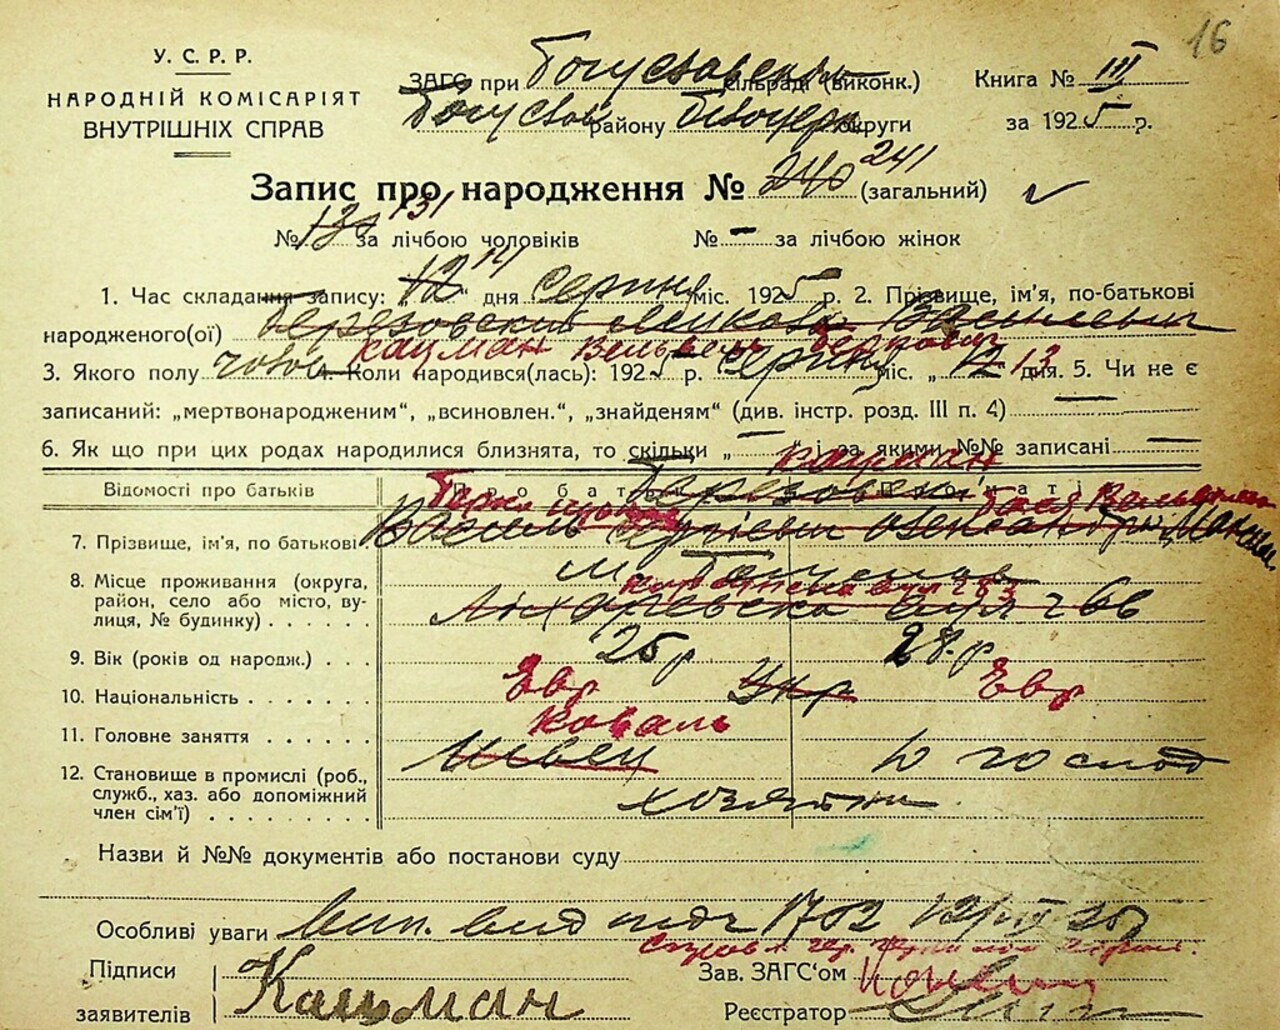 16
У. С. Р. Р.
НАРОДНІЙ КОМІСАРІЯТ
ВНУТРІШНІХ СПРАВ
ЗАГС при Богуславськ сільраді (виконк.)
Богуслав району Білоцерк округи
Книга № III
за 1925 р.
Запис про народження № 240 241 (загальний)
№ 130 131 за лічбою чоловіків № — за лічбою жінок
1. Час складання запису: „12 14“ дня Серпня міс. 1925 р. 2. Прізвище, ім’я, по-батькові
народженого(ої) Березовский Микола Васильевич
Кацман Вельвель Беркович
3. Якого полу чолов. Коли народився(лась): 1925 р. Серпня міс. „12 13 дня. 5. Чи не є
записаний: „мертвонародженим“, „всиновлен.“, „знайденям“ (див. інстр. розд. III п. 4) —
6. Як що при цих родах народилися близнята, то скільки „—“ і за якими №№ записані —
Кацман
Відомості про батьків Про батька Про матір
Березовськ
Берко Бася Вельвелев
7. Прізвище, ім’я, по батькові Василь
8. Місце проживання (округа,
район, село або місто, ву-
лиця, № будинку) . . . . .
м. Богуслав
вул ч 83
вул ч 66
9. Вік (років од народж.) . . . 25 р. 28 р
10. Національність . . . . . . Євр Укр Євр
11. Головне заняття . . . . . . Коваль
Швец
12. Становище в промислі (роб.,
служб., хаз. або допоміжний
член сім’ї) . . . . . . . . .
хозяин
Назви й №№ документів або постанови суду
Особливі уваги вип. вид 1702 25
Підписи
заявителів Кацман
Зав. ЗАГС’ом
Реєстратор